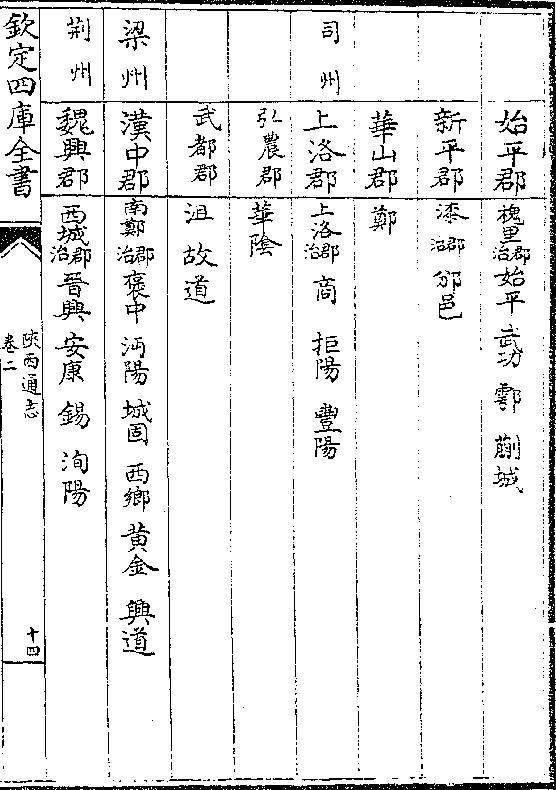 始平郡 槐里郡治 始平 武功 鄠 蒯城
新平郡 漆郡治 邠邑
華山郡 鄭
司州 上洛郡 上洛郡治 商 拒陽 豐陽
弘農郡 華陰
武都郡 沮 故道
梁州 漢中郡 南鄭郡治 褒中 沔陽 城固 西鄉 黄金 興道
荆州 魏興郡 西城郡治 晉興 安康 錫 洵陽
欽定四庫全書 陜西通志 卷二 十四